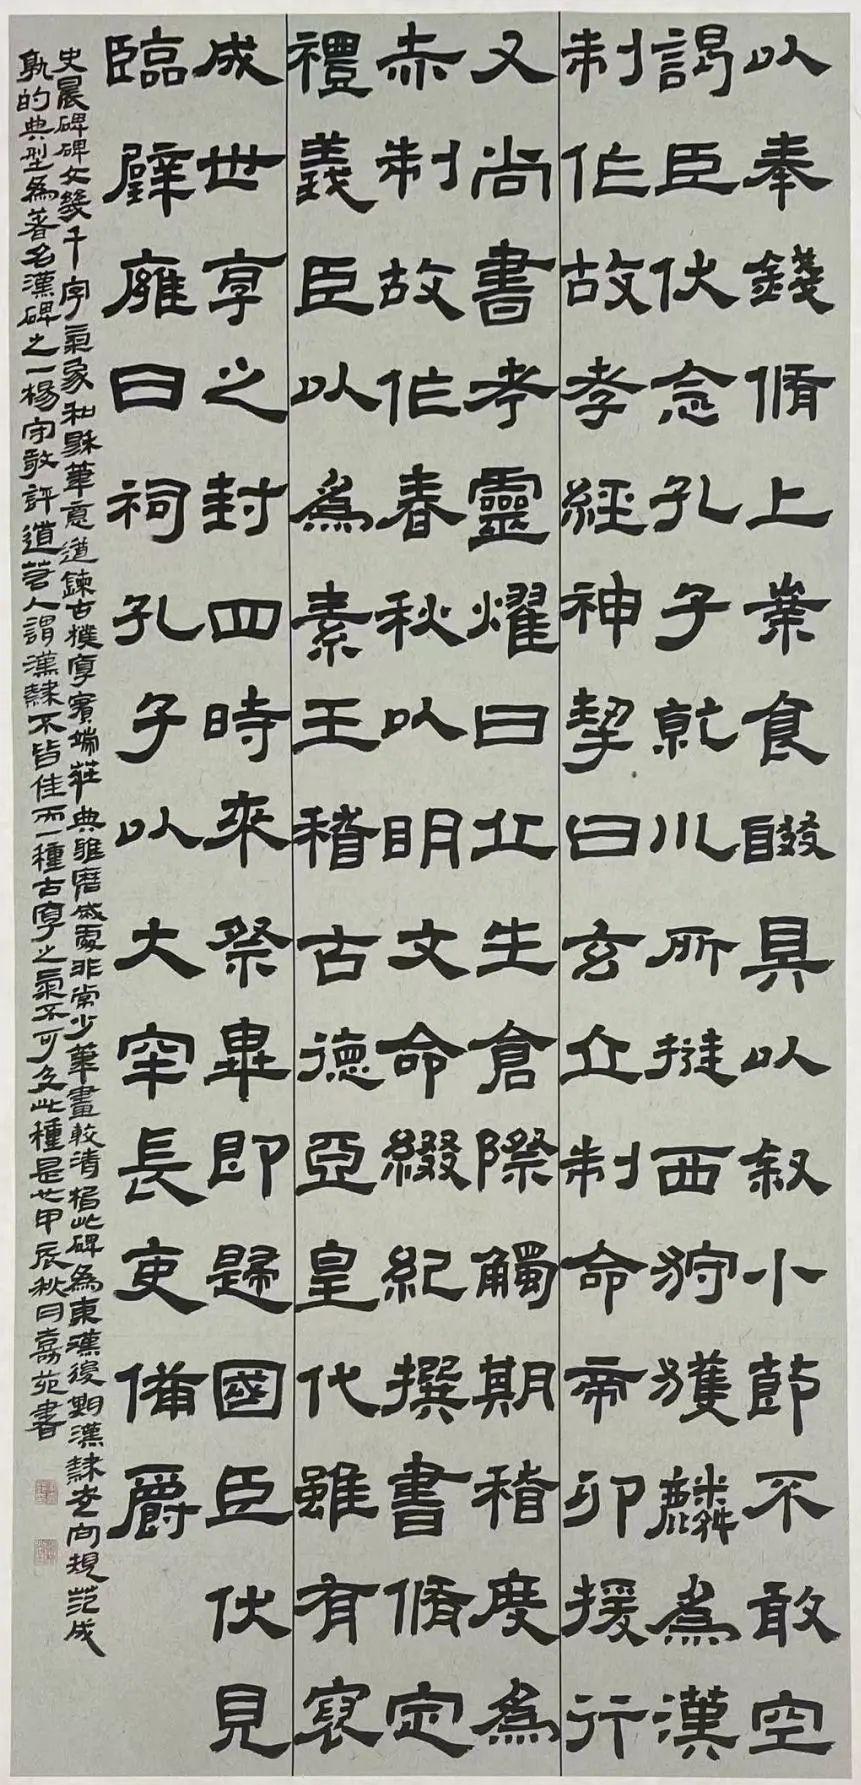 以奉錢脩上案食醊具以叙小節不敢空
謁臣伏念孔子乾川所挺西狩獲麟為漢
制作故孝經神挈曰玄丘制命帝卯援行
又尚書考靈燿曰丘生倉際觸期稽度為
赤制故作春秋以明文命綴紀撰書脩定
禮義臣以為素王稽古德亞皇代雖有褒
成世享之封四時來祭畢即歸國臣伏見
臨璧廱日祠孔子以大牢長吏備爵
史晨碑碑文幾千字氣象和穆筆意遒鍊古樸厚實端莊典雅磨滅處非常少筆畫較清楷此碑為東漢後期漢隸走向規范成
孰的典型為著名漢碑之一楊守敬評道昔人謂漢隸不皆佳而一種古厚之氣不可及此種是也甲辰秋月嘉苑書